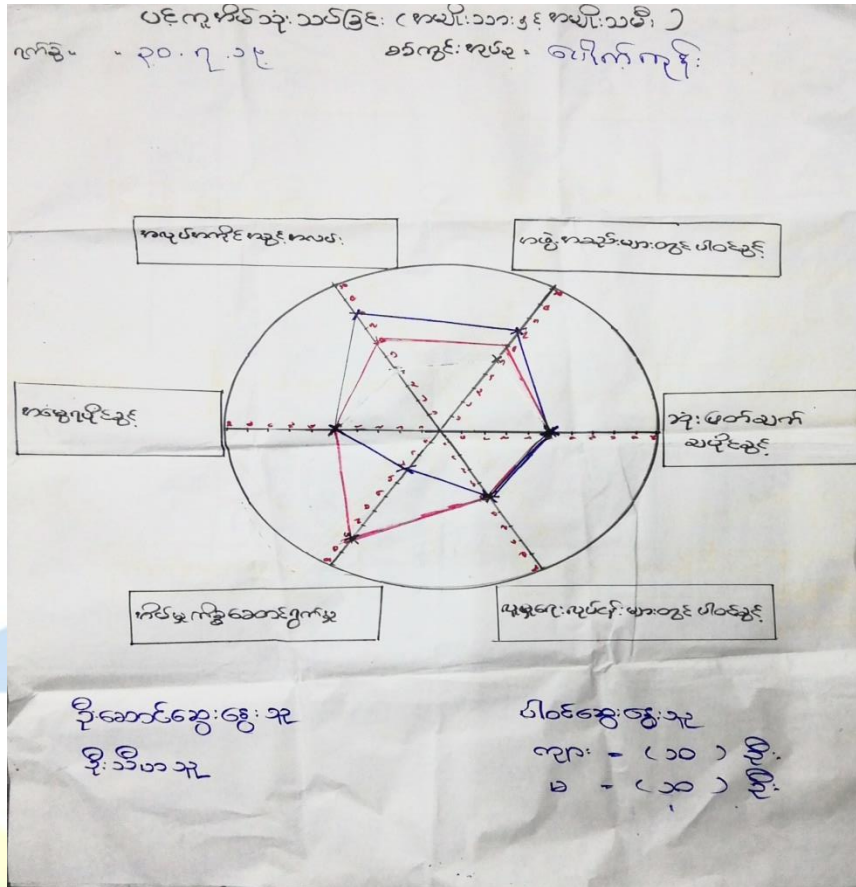 ပင့်ကူအိမ်သုံးသပ်ခြင်း (အမျိုးသားနှင့်အမျိုးသမီး)
ရက်စွဲ - ၃၀.၇.၁၉
စစ်ကွင်းအုပ်စု - ပေါက်ကုန်း
အလုပ်အကိုင်အခွင့်အလမ်း
အဖွဲ့အစည်းများတွင် ပါဝင်ခွင့်
အမွေရပိုင်ခွင့်
သုံးဖြတ်သက်
သပိုင်ခွင့်
အိမ်မှုကိစ္စဆောင်ရွက်မှု
လူမှုရေးလုပ်ငန်းများတွင် ပါဝင်ခွင့်
ဦးဆောင်ဆွေးနွေးသူ
ဦးသီဟသူ
ပါဝင်ဆွေးနွေးသူ
ကျား - (၁၀) ဦး
မ - (၁၃) ဦး